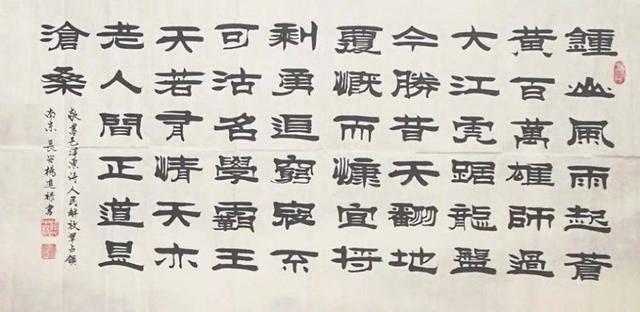 鍾山風雨起蒼
黃百萬雄師過
大江虎踞龍盤
今勝昔天翻地
覆慨而慷宜將
剩勇追窮寇不
可沽名學霸王
天若有情天亦
老人間正道是
滄桑
敬書毛澤東詩人民解放軍占領
南京 長安楊進書